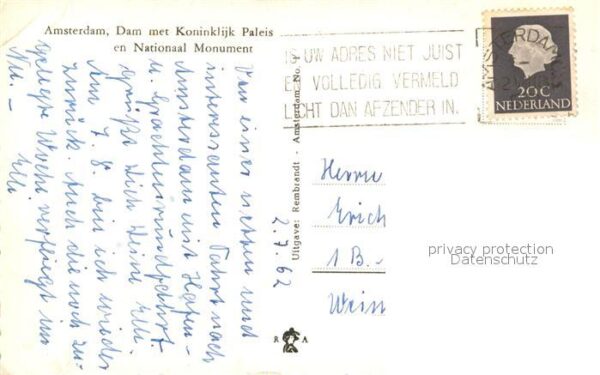 Amsterdam, Dam met Koninklijk Paleis
en Nationaal Monument
IS UW ADRES NIET JUIST
EN VOLLEDIG VERMELD
LICHT DAN AFZENDER IN.
AMSTERDAM
20 C
NEDERLAND
Uitgave: Rembrandt - Amsterdam No.
2.7.62
Von einer netten und
interessanten Fahrt nach
Amsterdam mit Hafen-
u. Grachtenrundfahrt
grüßt Dich Deine Elli.
Am 7.8. bin ich wieder
zurück. Auch die noch
Woche verfliegt im
Nu. - Elli
Herrn
Erich
1 B.-
Wein
privacy protection
Datenschutz
R A